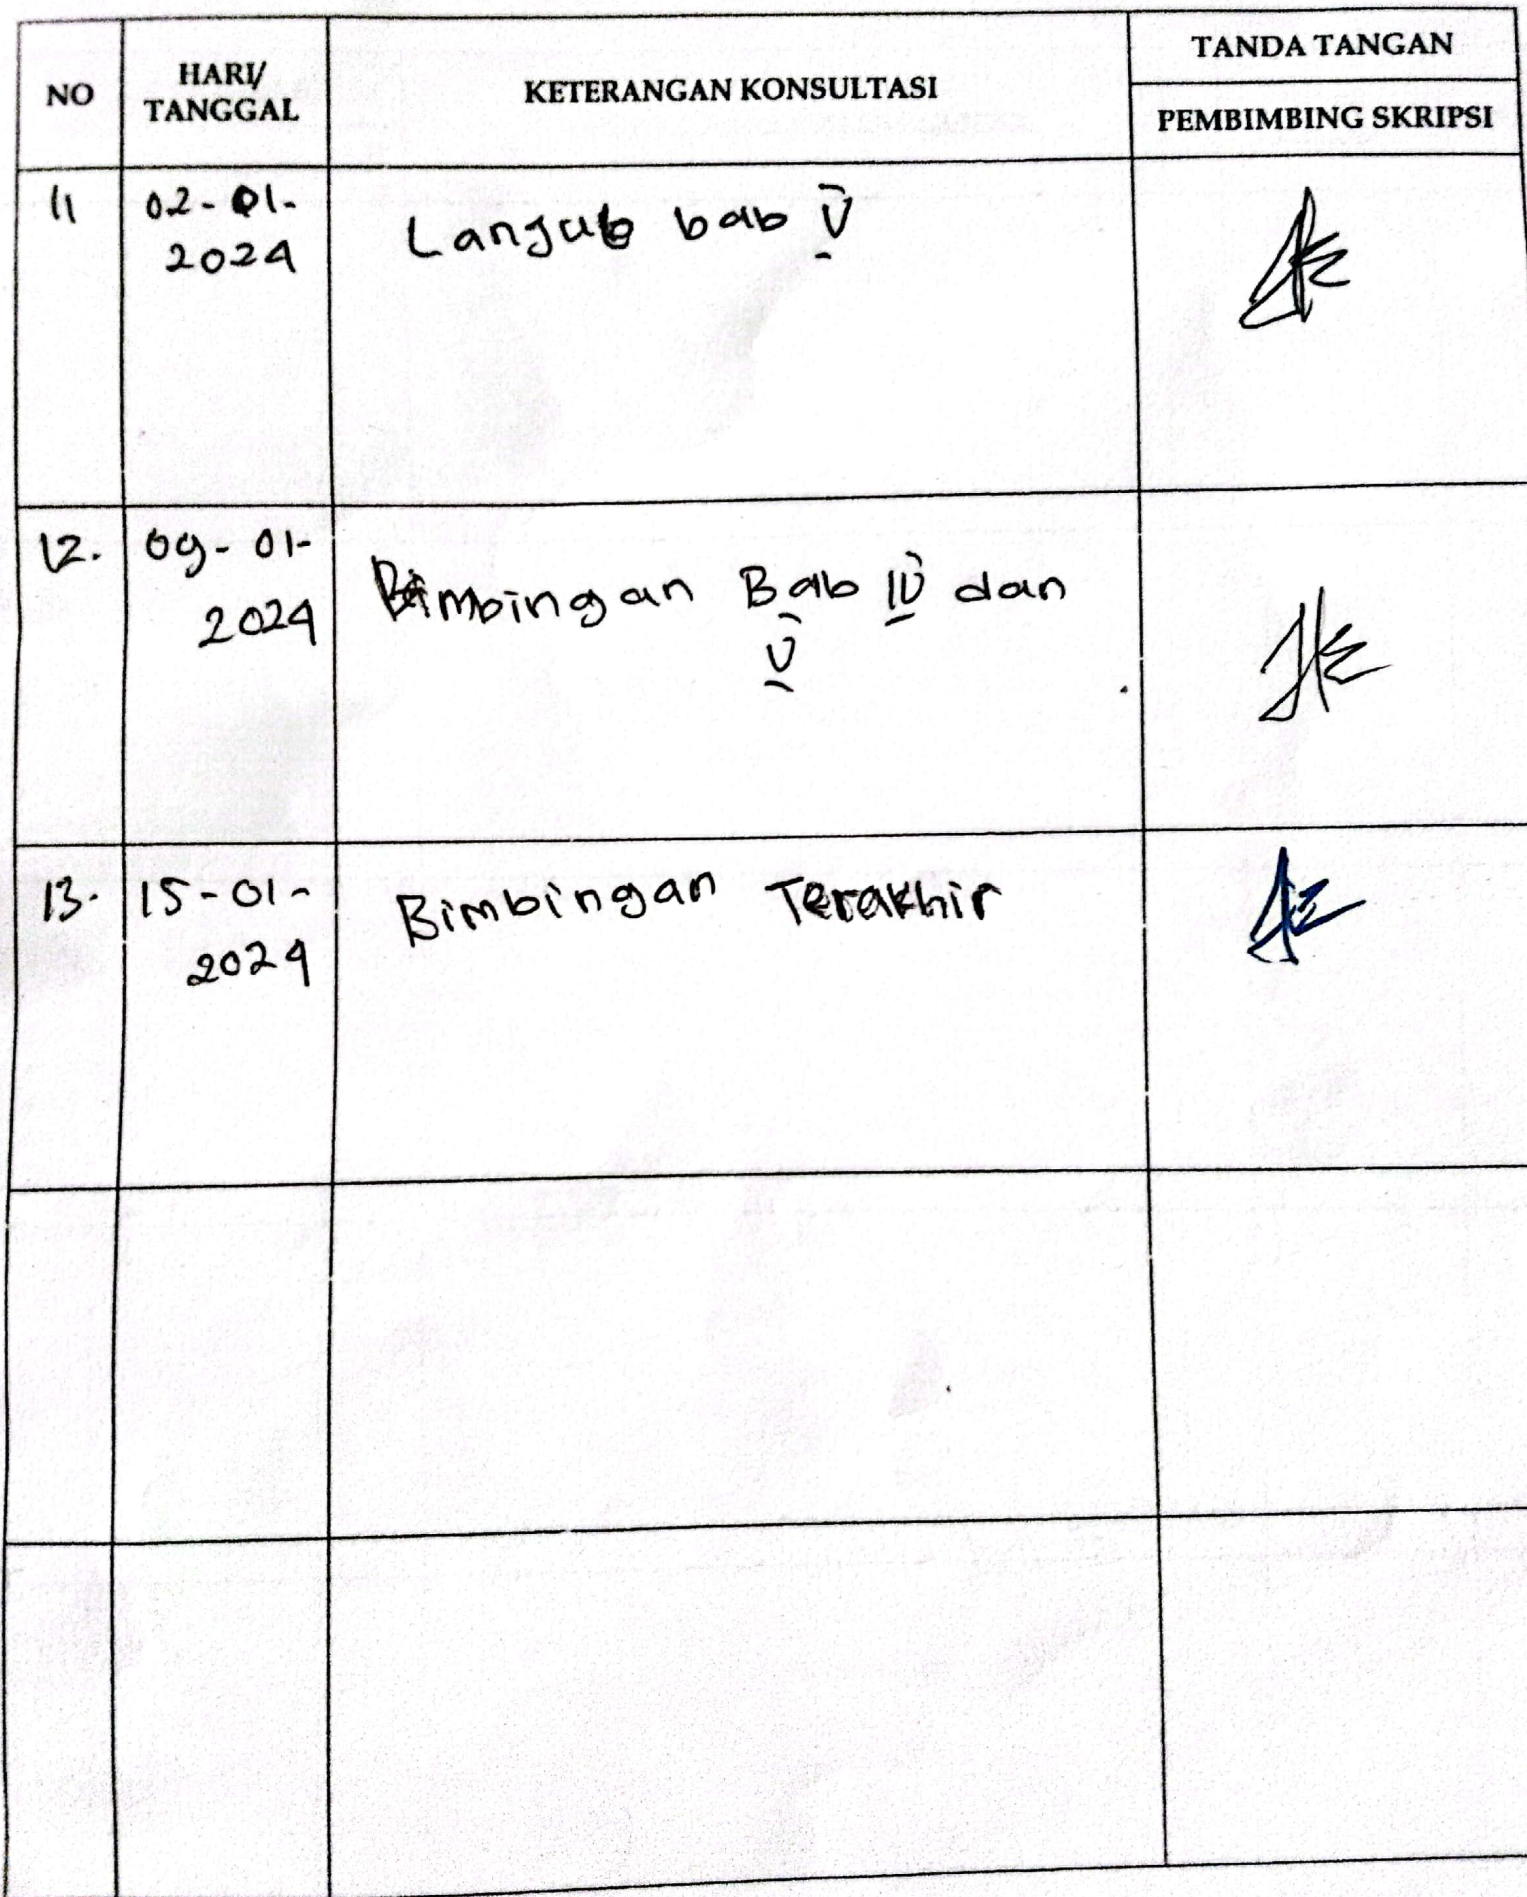 NO
HARI/
TANGGAL
KETERANGAN KONSULTASI
TANDA TANGAN
PEMBIMBING SKRIPSI
11
02-01-
2024
Lanjut bab V
12.
09-01-
2024
Bimbingan Bab IV dan
V
13.
15-01-
2024
Bimbingan Terakhir